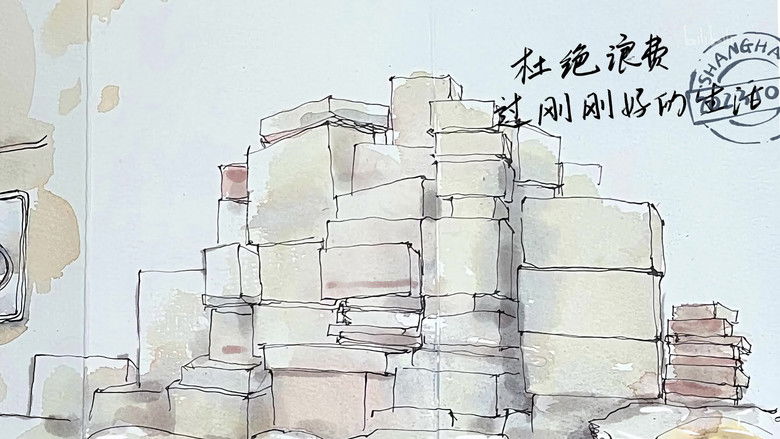 杜绝浪费
过刚刚好的生活
SHANGHA